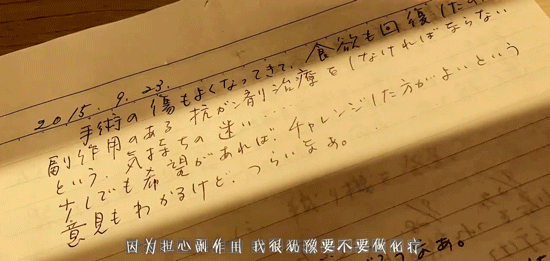 2015.9.23.
手術の傷もよくなってきて、食欲も回復した
副作用のある抗がん剤治療をしなければならない
という、気持ちの迷い…
少しでも希望があれば、チャレンジした方がよいという
意見もわかるけど、つらいなあ。
なあ。
因为担心副作用 我很犹豫要不要做化疗